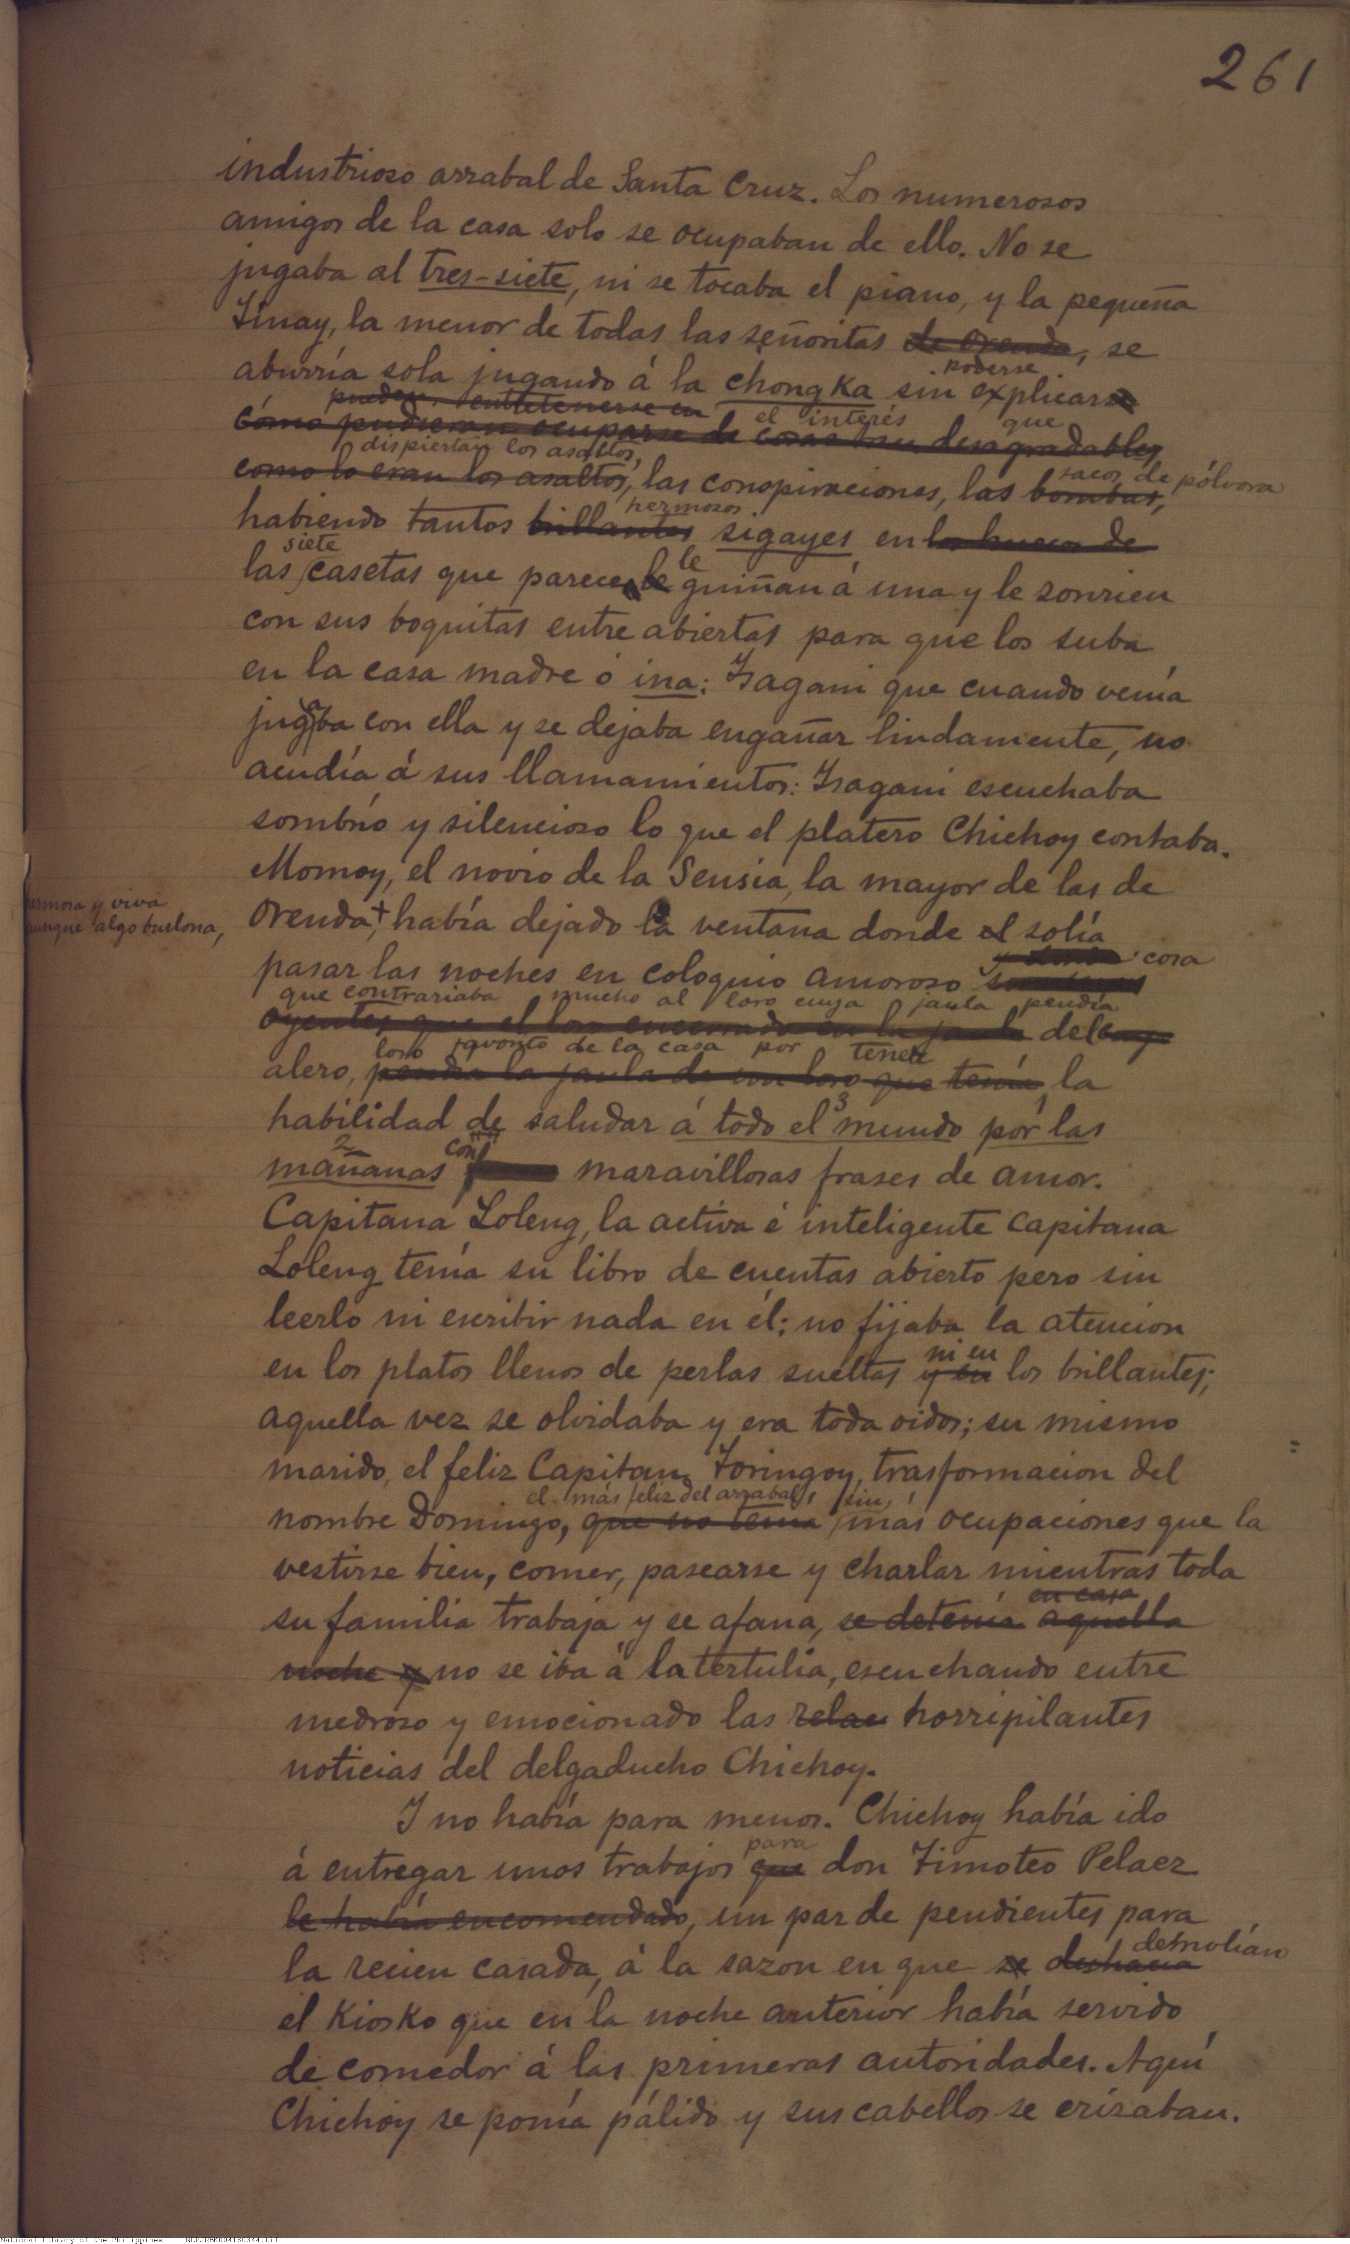 261
industrioso arrabal de Santa Cruz. Los numerosos
amigos de la casa solo se ocupaban de ello. No se
jugaba al tres-siete, ni se tocaba el piano, y la pequeña
Tinay, la menor de todas las señoritas de Orenda, se
poderse
aburría sola jugando á la chongka sin explicarse
pueden entretenerse en
el interés que
cómo pudieran ocuparse de cosas tan desagradables
dispiertan los asaltos,
sacos de pólvora
como lo eran los asaltos, las conspiraciones, las bombas,
hermosos
habiendo tantos brillantes sigayes en los huecos de
siete
le
las casetas que parece le guiñan á una y le sonrien
con sus boquitas entre abiertas para que los suba
en la casa madre ó ina: Isagani que cuando venía
jugaba con ella y se dejaba engañar lindamente, no
acudía á sus llamamientos: Isagani escuchaba
sombrío y silencioso lo que el platero Chichoy contaba.
Momoy, el novio de la Sensia, la mayor de las de
hermosa y viva
aunque algo burlona,
Orenda,+ había dejado la ventana donde el solía
cosa
pasar las noches en coloquio amoroso
que contrariaba mucho al loro cuya jaula pendía
oyentes que el loro encerrado en la jaula del
loro favorito de la casa por tener
alero, pendia la jaula de un loro que tenía, la
habilidad de saludar á todo el 3 mundo por las
2 con
mañanas maravillosas frases de amor.
Capitana Loleng, la activa é inteligente Capitana
Loleng tenía su libro de cuentas abierto pero sin
leerlo ni escribir nada en él; no fijaba la atencion
ni en
en los platos llenos de perlas sueltas y en los brillantes;
aquella vez se olvidaba y era toda oidos; su mismo
marido, el feliz Capitan Toringoy, trasformacion del
el más feliz del arrabal, sin
nombre Domingo, que no tenía más ocupaciones que la
vestirse bien, comer, pasearse y charlar mientras toda
en casa
su familia trabaja y se afana, se detenía aquella
noche y no se iba á la tertulia, escuchando entre
medroso y emocionado las relac horripilantes
noticias del delgaducho Chichoy.
I no había para menos. Chichoy había ido
para
á entregar unos trabajos que don Timoteo Pelaez
le había encomendado, un par de pendientes para
demolían
la recien casada, á la sazon en que se deshacia
el Kiosko que en la noche anterior había servido
de comedor á las primeras autoridades. Aquí
Chichoy se ponía pálido y sus cabellos se erizaban.